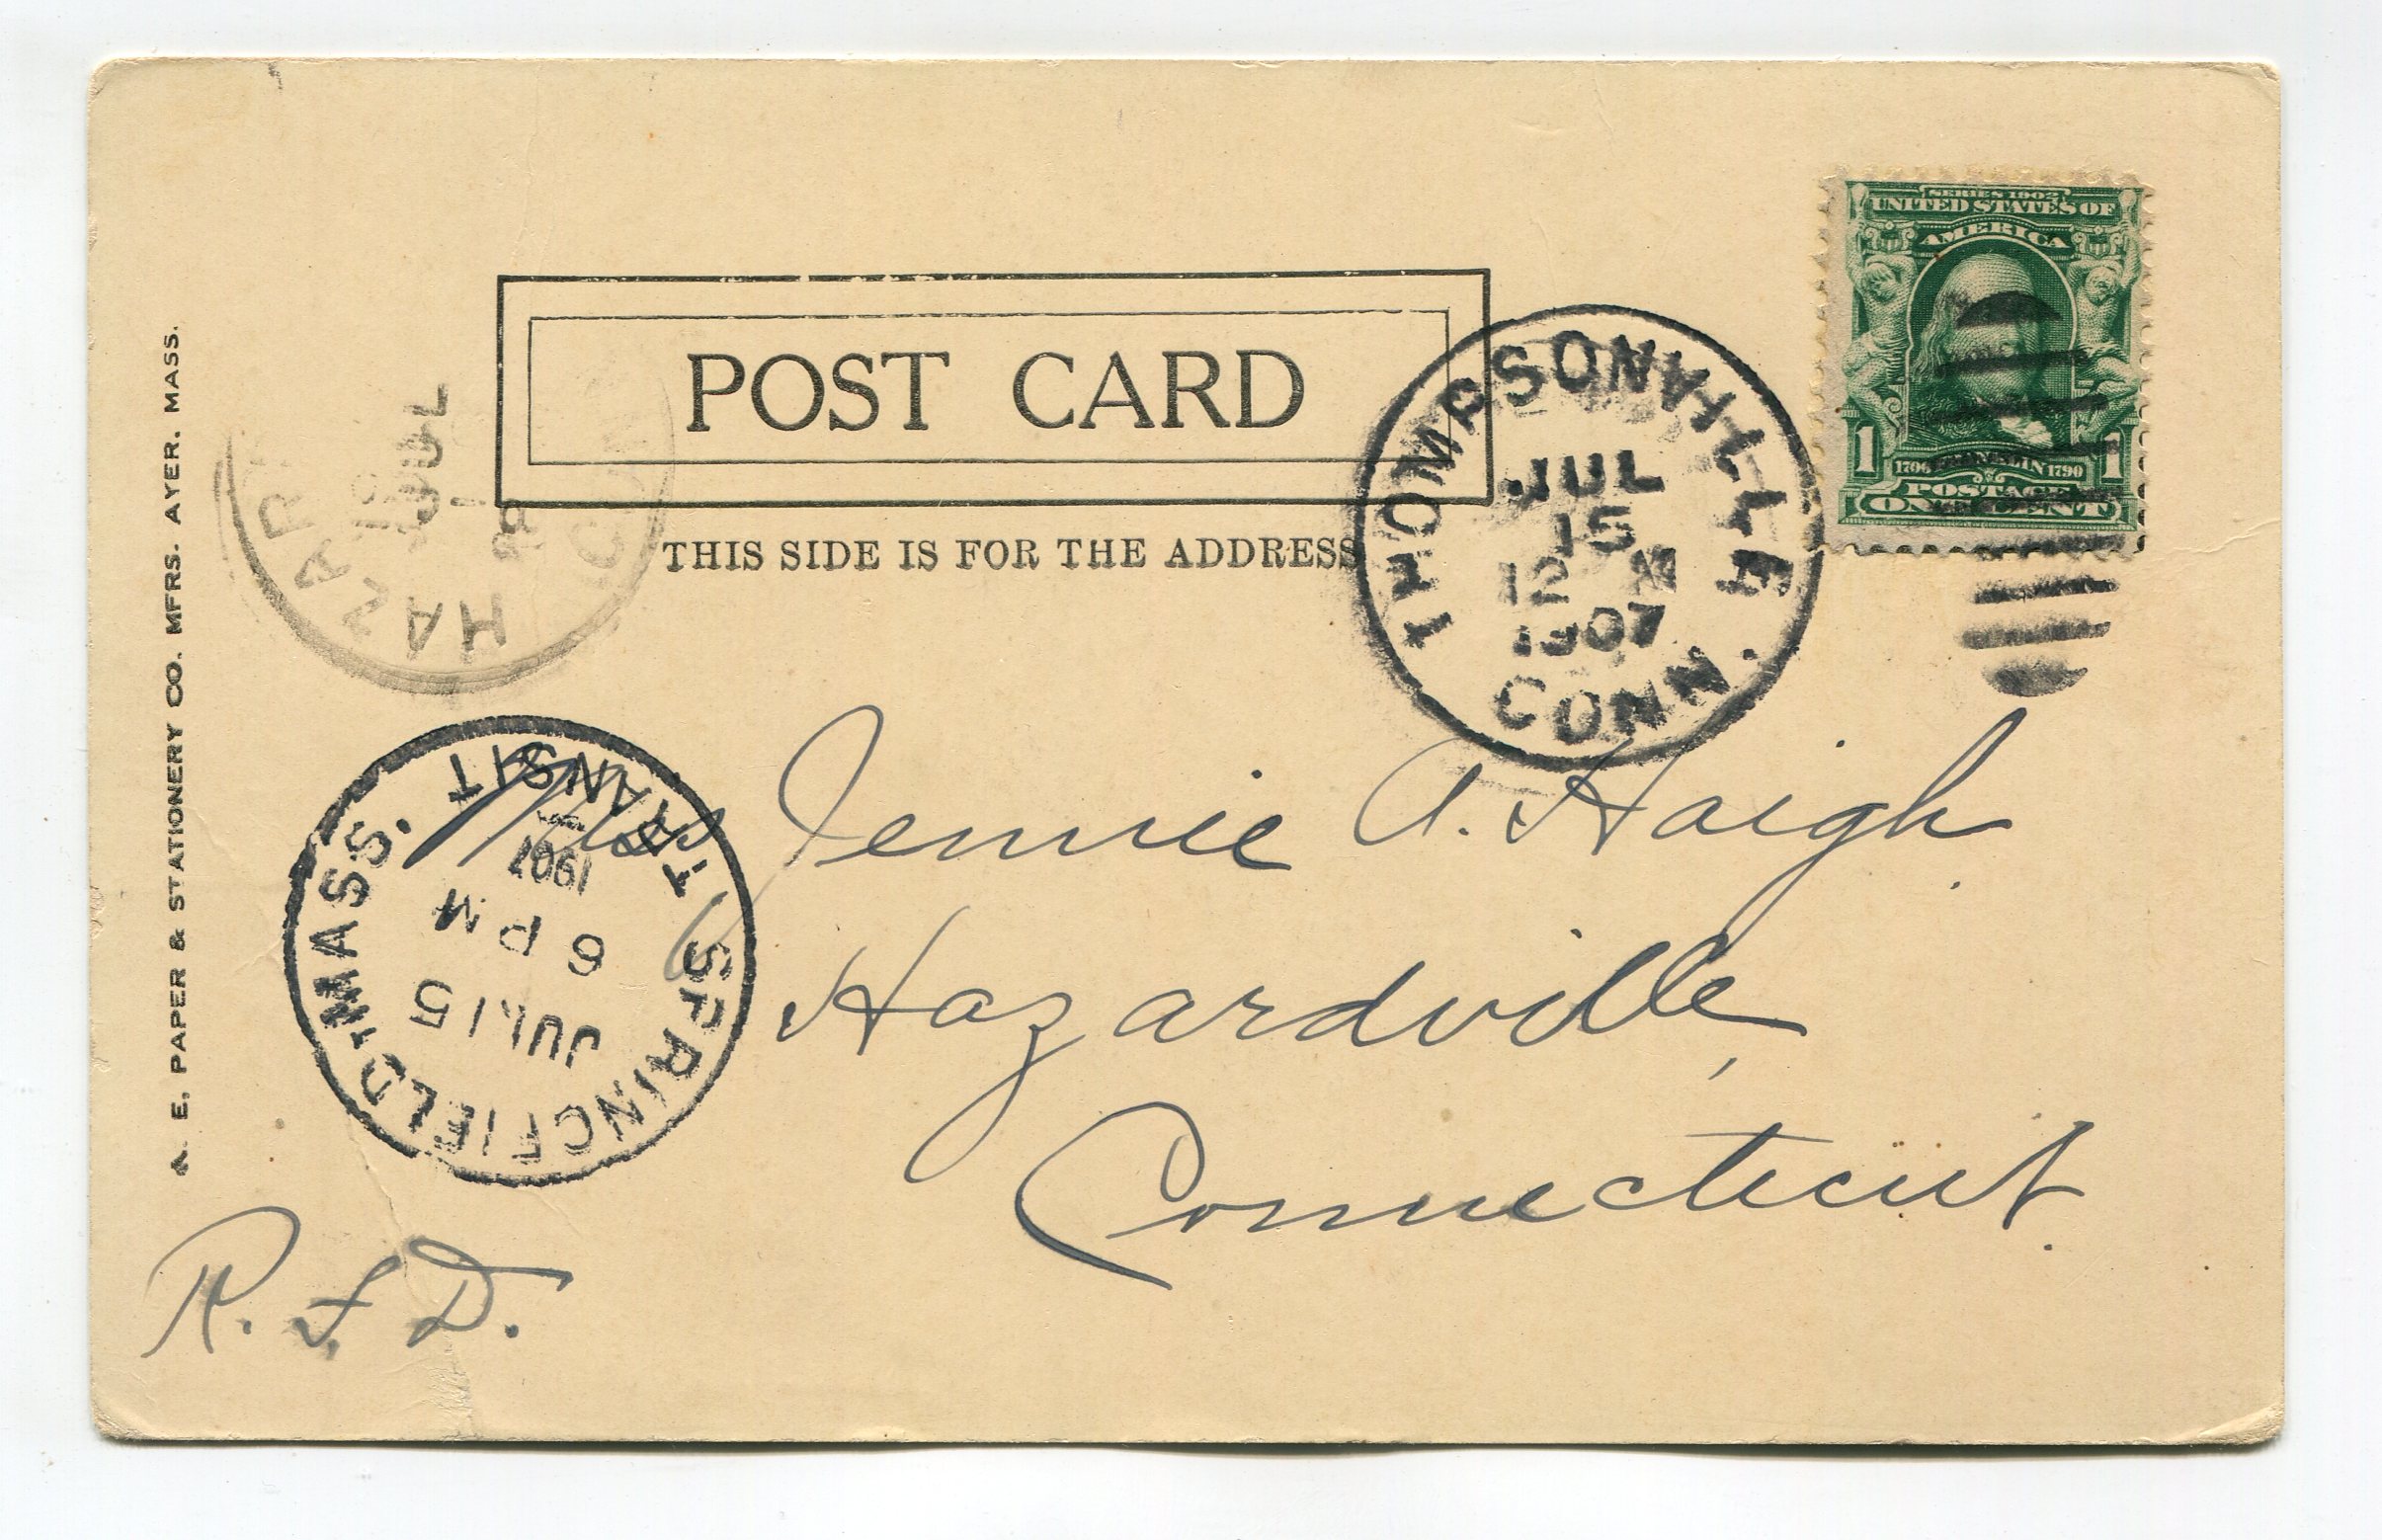 SERIES 1902
UNITED STATES OF
AMERICA
1 1706 FRANKLIN 1790 1
POSTAGE
ONE CENT
POST CARD
THIS SIDE IS FOR THE ADDRESS
THOMPSONVILLE
JUL
15
12 M
1907
CONN.
HAZAR
JUL
CONN
TRANSIT
1907
6 PM
JUL 15
SPRINGFIELD, MASS.
Miss Jennie A. Haigh
Hazardville,
Connecticut.
R. F. D.
A. E. PAPER & STATIONERY CO. MFRS. AYER. MASS.